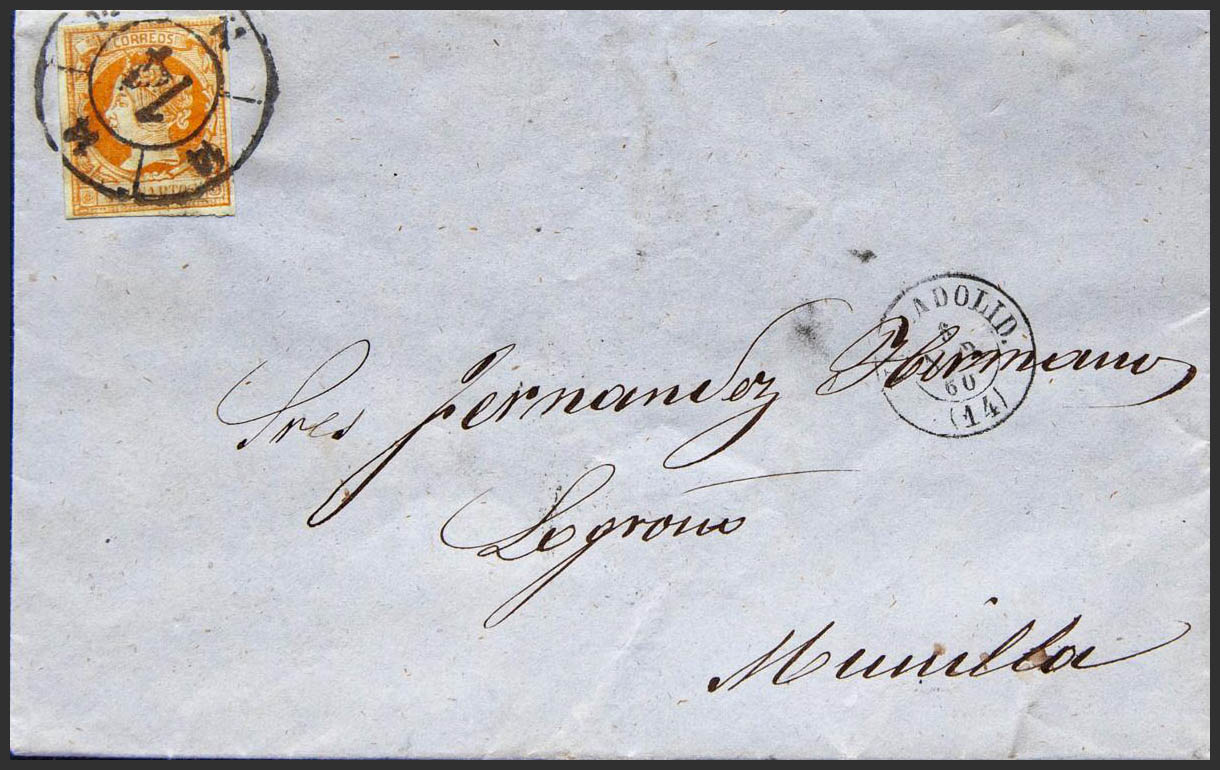 CORREOS
ADOLID.
60
(14)
Sres Fernandez Hermano
Logroño
Munilla